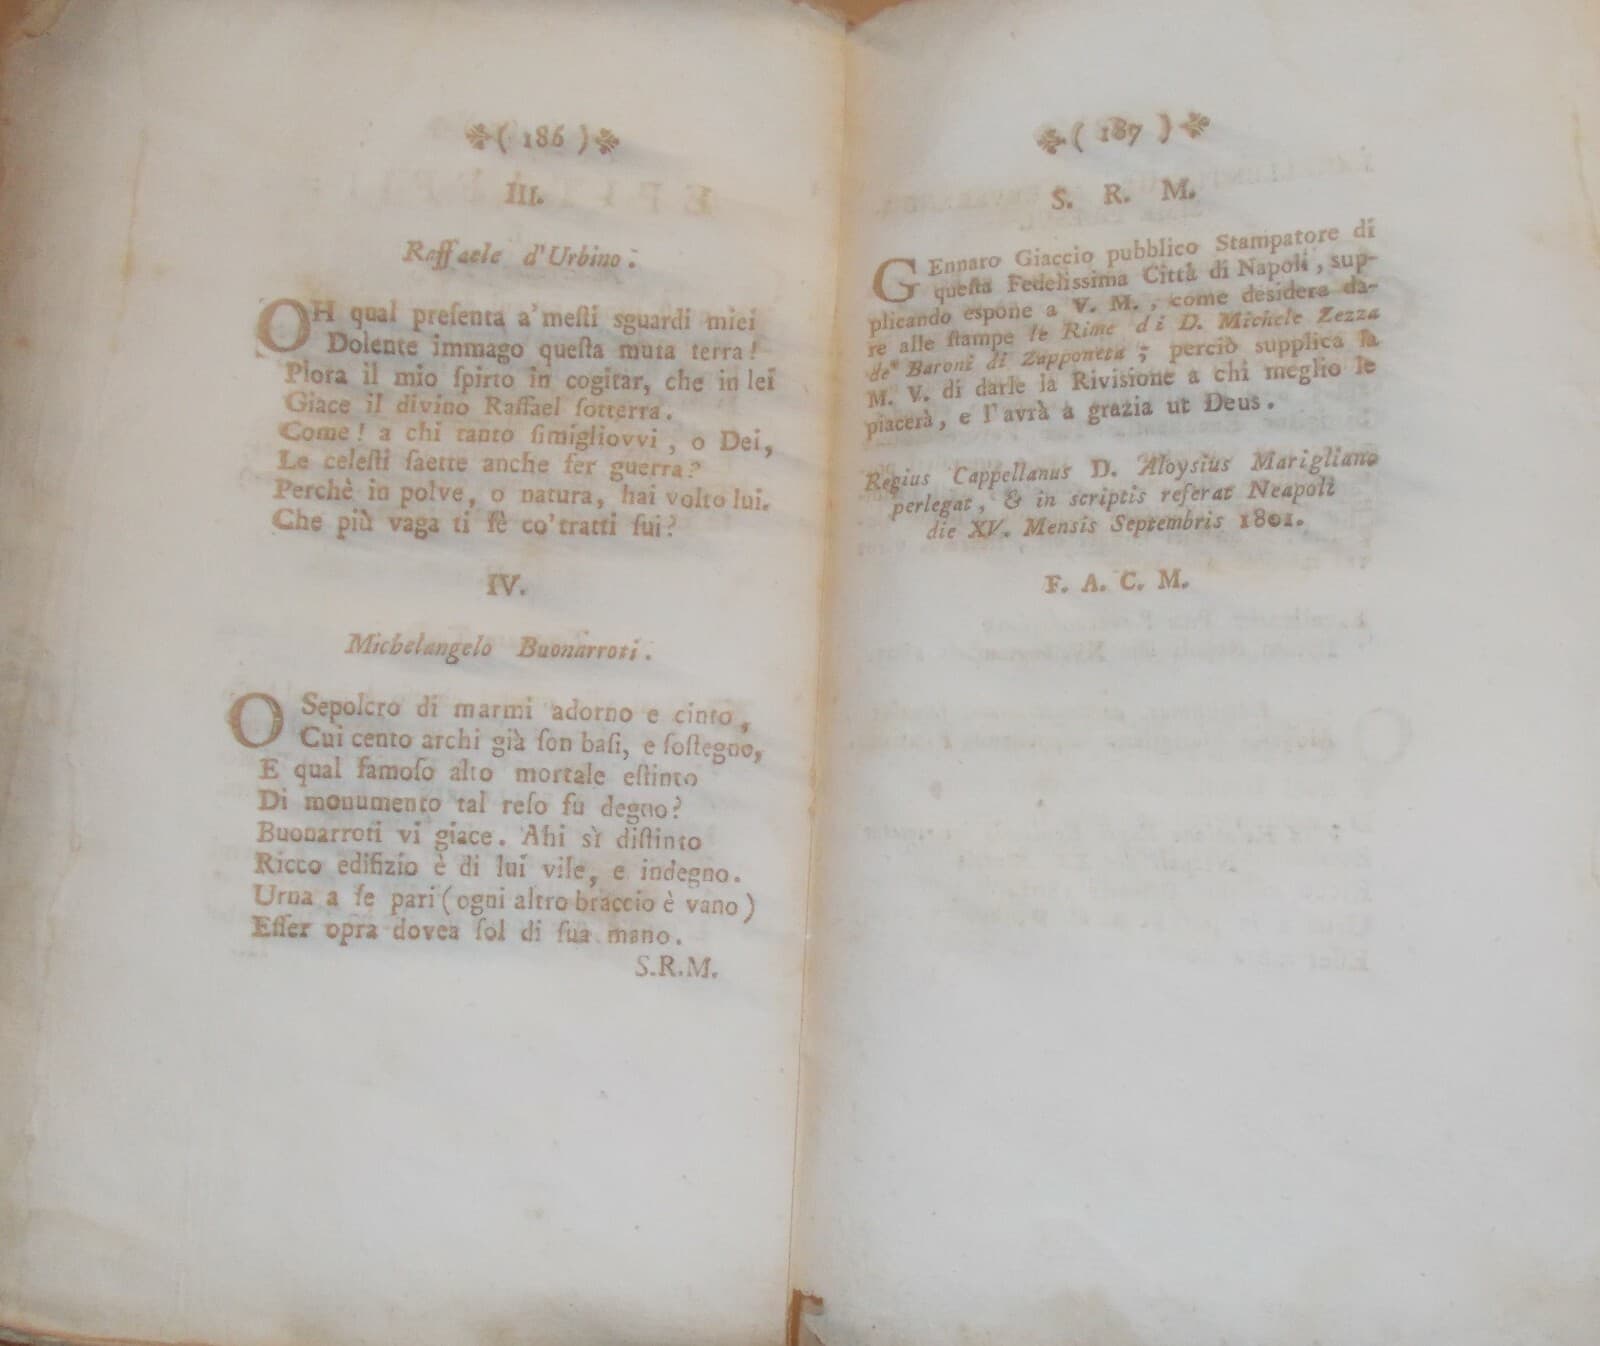 ( 186 )
III.
Raffaele d'Urbino.
OH qual preſenta a'meſti sguardi miei
Dolente immago queſta muta terra!
Plora il mio ſpirto in cogitar, che in lei
Giace il divino Raffael ſotterra.
Come! a chi tanto ſimigliovvi, o Dei,
Le celeſti ſaette anche fer guerra?
Perchè in polve, o natura, hai volto lui.
Che più vaga ti fè co'tratti ſui?
IV.
Michelangelo Buonarroti.
O Sepolcro di marmi adorno e cinto,
Cui cento archi già ſon baſi, e ſoſtegno,
E qual famoſo alto mortale eſtinto
Di monumento tal reſo fu degno?
Buonarroti vi giace. Ahi sì diſtinto
Ricco edifizio è di lui vile, e indegno.
Urna a ſe pari (ogni altro braccio è vano)
Eſſer opra dovea ſol di ſua mano.
S.R.M.
( 187 )
S. R. M.
GEnnaro Giaccio pubblico Stampatore di
queſta Fedeliſsima Città di Napoli, sup-
plicando espone a V. M., come desidera da-
re alle ſtampe le Rime di D. Michele Zezza
de' Baroni di Zapponeta; perciò supplica la
M. V. di darle la Rivisione a chi meglio le
piacerà, e l'avrà a grazia ut Deus.
Regius Cappellanus D. Aloysius Marigliano
perlegat, & in scriptis referat Neapoli
die XV. Mensis Septembris 1801.
F. A. C. M.